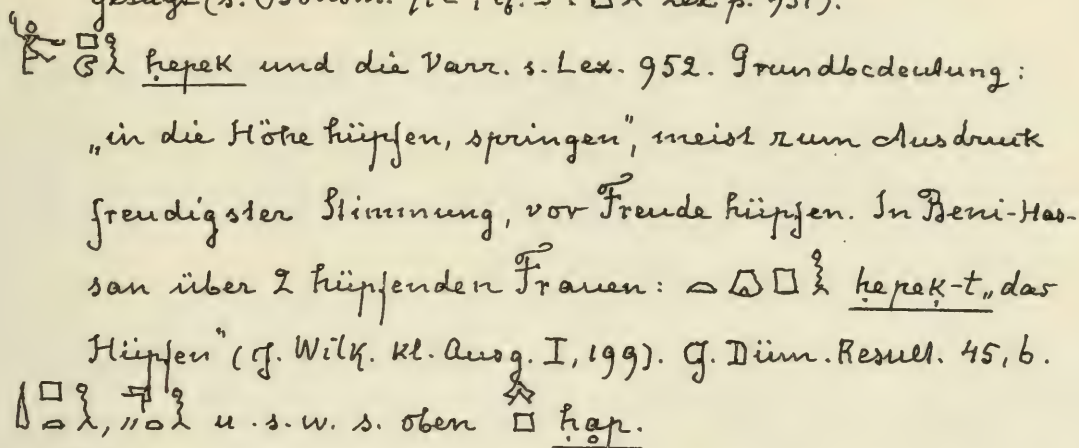 gesagt (s. p. 951).
ḥepek und die Varr. s. Lex. 952. Grundbedeutung:
„in die Höhe hüpfen, springen", meist zum Ausdruck
freudigster Stimmung, vor Freude hüpfen. In Beni-Has-
san über 2 hüpfenden Frauen: ḥepeḳ-t „das
Hüpfen" (cf. Wilk. kl. Ausg. I, 199). Cf. Düm. Result. 45, b.
u. s. w. s. oben ḥap.